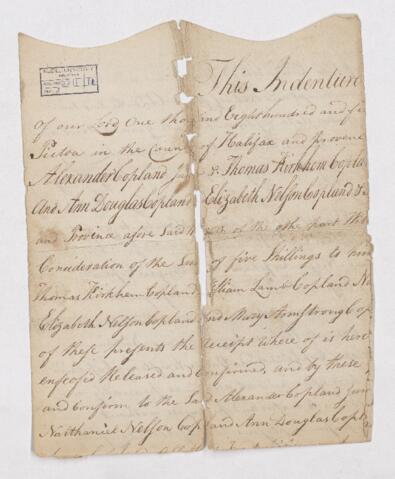 This Indenture
of our Lord One thou and Eight hundred and fi
Pictou in the County of Halifax and provence
Alexander Copland Thomas Kirkhem Copla
And Ann Douglas Copland Elizabeth Nelson Copland
and Province afore Said of the othe part
Consideration of the Sum of five Shillings to
Thomas Kirkhem Copland William Lamb Copland Na
Elizabeth Nelson Copland and Mary Armstrong Cop
of these presents the Receipt where of is here
enfeofed Released and Confirmed, and by these
and Confirm to the Said Alexander Copland Jun
Nathaniel Nelson Copland Ann Douglas Copl